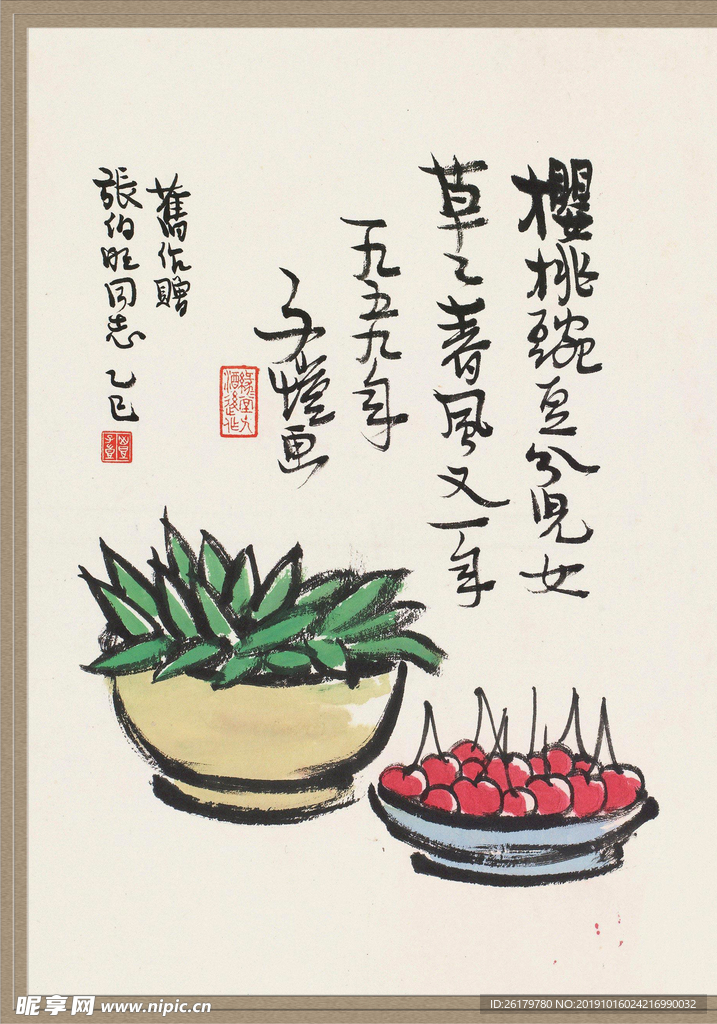 櫻桃豌豆分兒女
草々春風又一年
一九五九年
子愷画
舊作贈
張伯旺同志 乙巳
昵享网 www.nipic.cn
ID:26179780 NO:20191016024216990032